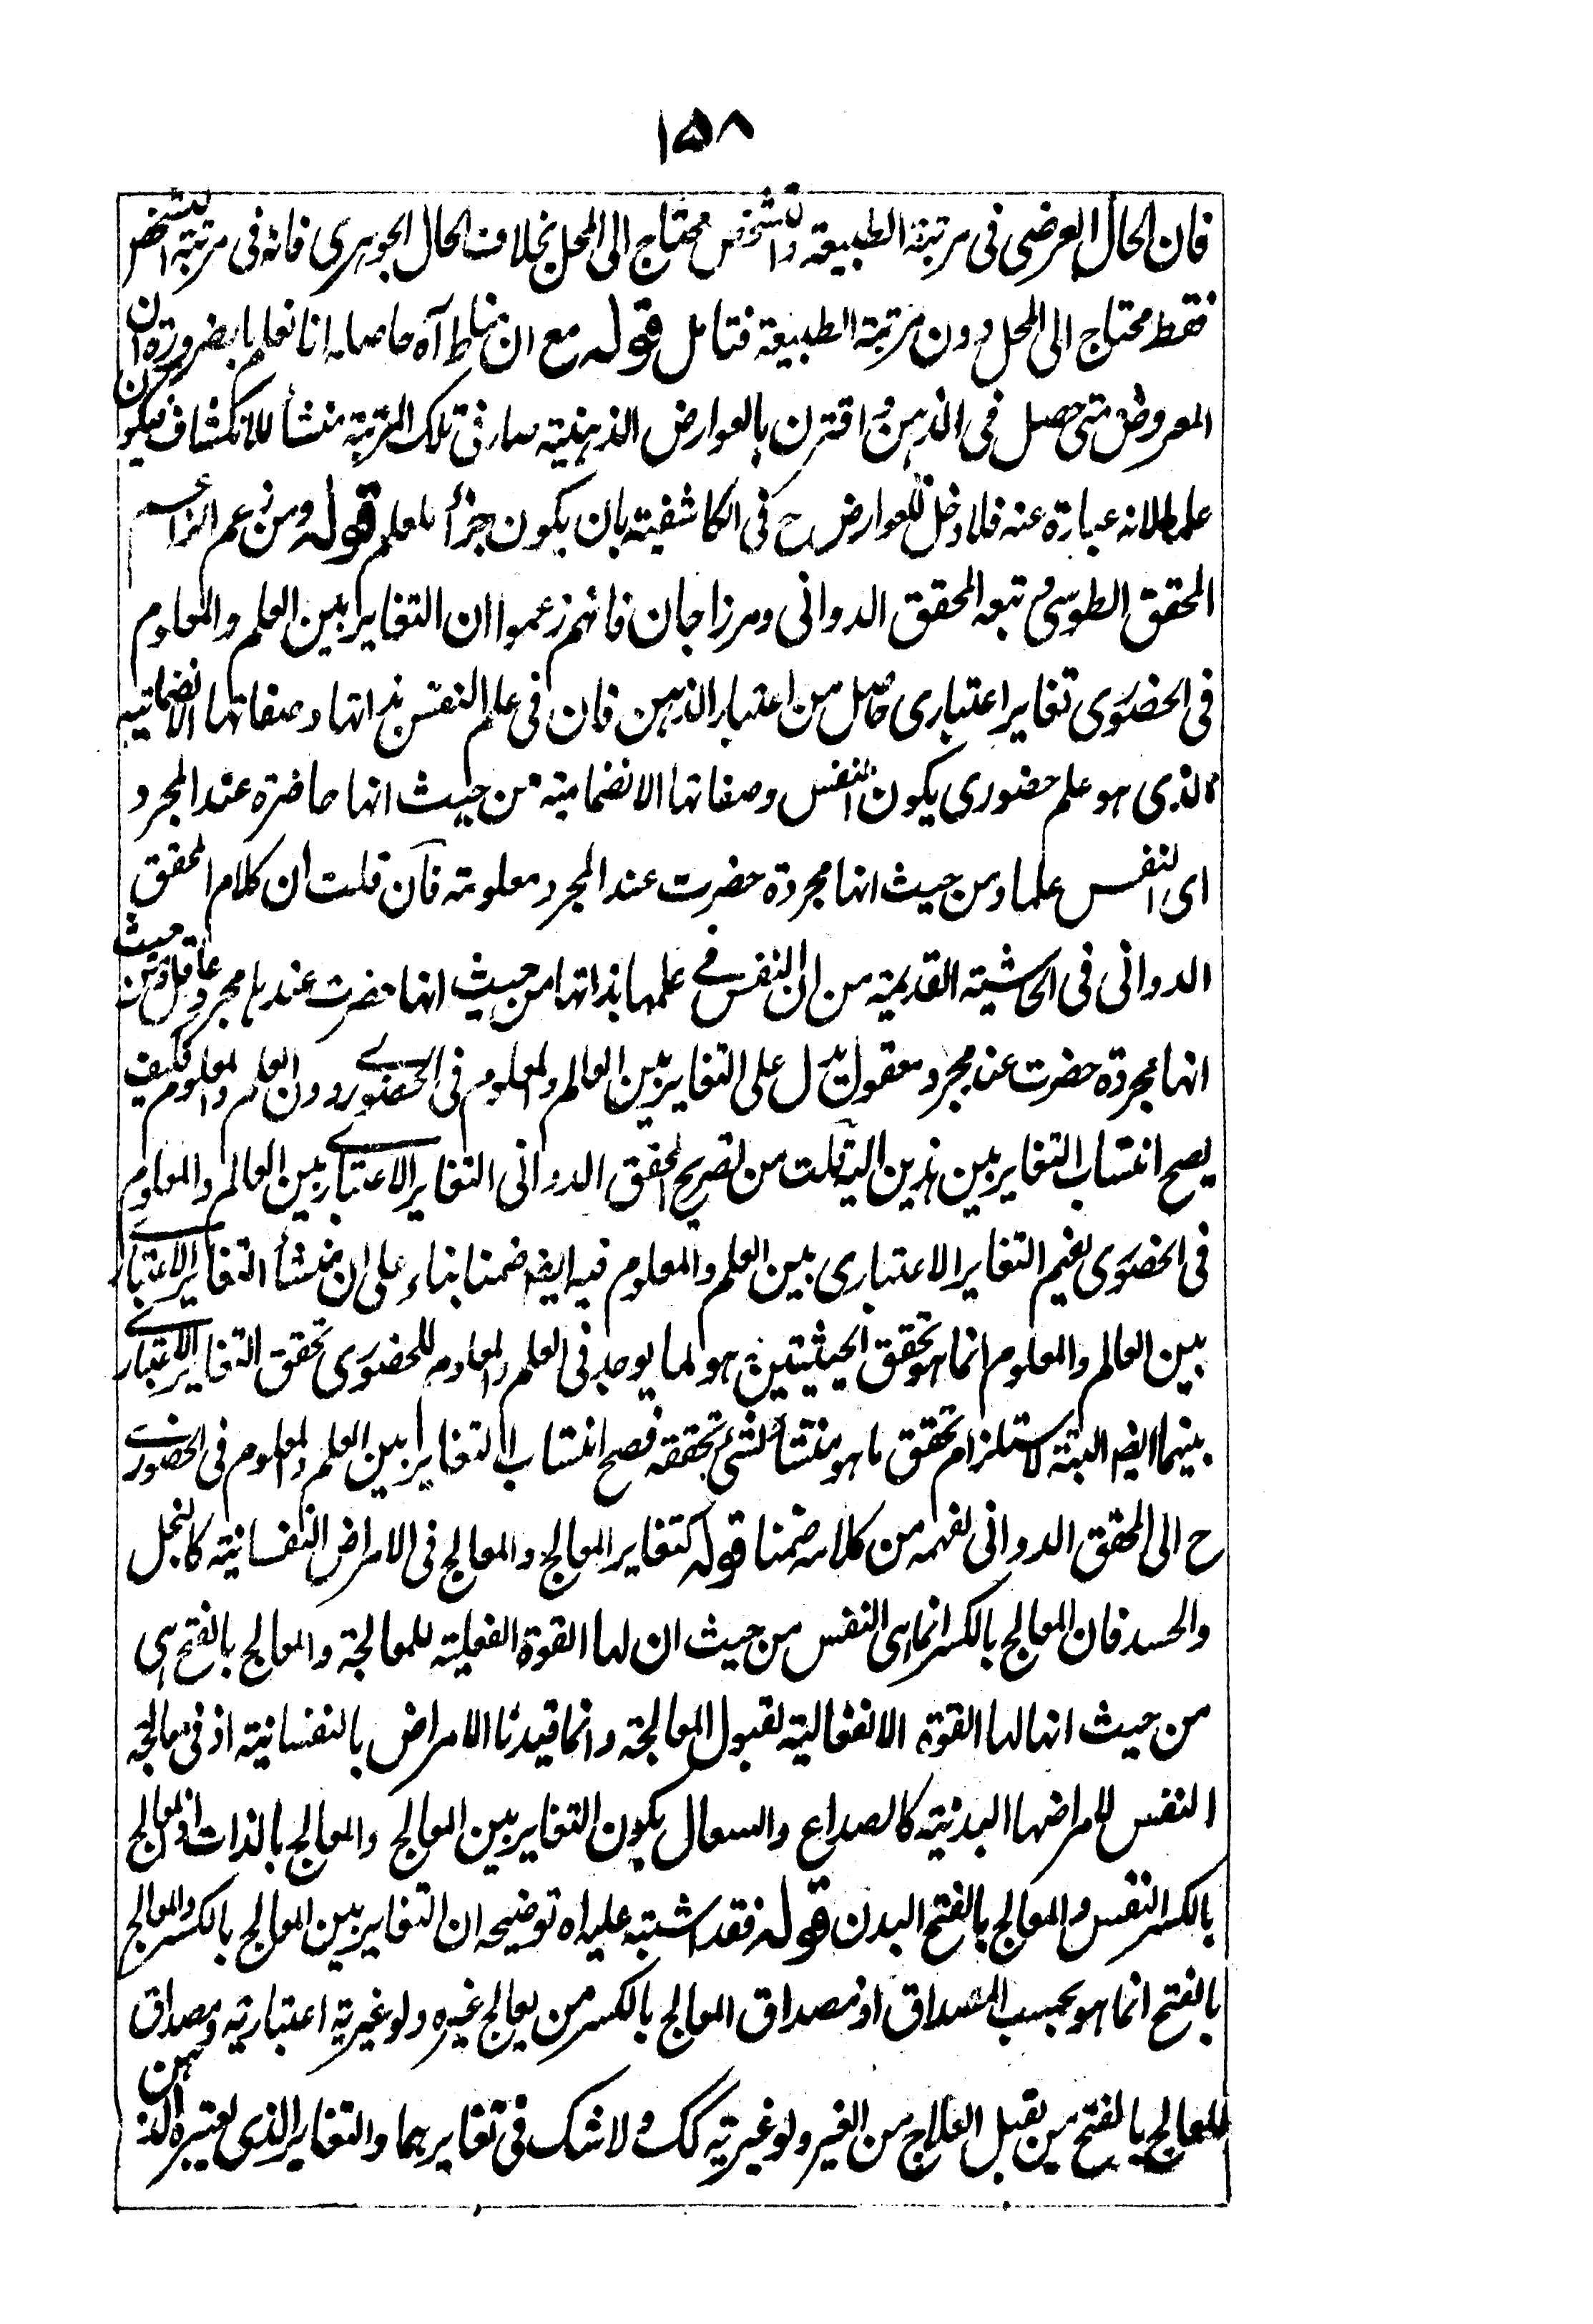 ١٥٨
فان الحال العرضى فى مرتبة الطبيعة والتشخص محتاج الى المحل بخلاف الحال الجوهرى فانه فى مرتبة التشخص
فقط محتاج الى المحل دون مرتبة الطبيعة فتامل قوله مع ان مناط آه حاصله انا نعلم بالضرورة ان
المعروض متى حصل فى الذهن واقترن بالعوارض الذهنية صار فى تلك المرتبة منشأ للانكشاف فيكون
علما لانه عبارة عنه فلا دخل للعوارض ح فى الكاشفية بان يكون جزأ للعلم قوله ومن زعم الزاعم
المحقق الطوسى وتبعه المحقق الدوانى ومرزا جان فانهم زعموا ان التغاير بين العلم والمعلوم
فى الحضورى تغاير اعتبارى حاصل من اعتبار الذهن فان فى علم النفس بذاتها وصفاتها الانضمامية
الذى هو علم حضورى يكون النفس وصفاتها الانضمامية من حيث انها حاضرة عند المجرد
اى النفس علما ومن حيث انها مجردة حضرت عند المجرد معلومة فان قلت ان كلام المحقق
الدوانى فى الحاشية القديمة من ان النفس فى علمها بذاتها من حيث انها حضرت عندها مجرد عاقل ومن حيث
انها مجردة حضرت عند مجرد معقول يدل على التغاير بين العالم والمعلوم فى الحضورى دون العلم والمعلوم فكيف
يصح انتساب التغاير بين هذين اليه قلت من تصريح المحقق الدوانى التغاير الاعتبارى بين العالم والمعلوم
فى الحضورى يفهم التغاير الاعتبارى بين العلم والمعلوم فيه ايضا ضمنا بناء على ان منشأ التغاير الاعتبارى
بين العالم والمعلوم انما هو تحقق الحيثيتين وهو لما يوجد فى العلم والمعلوم للحضورى تحقق التغاير الاعتبارى
بينهما ايضا البتة لاستلزام تحقق ما هو منشأ لشىء تحققه فصح انتساب التغاير بين العلم والمعلوم فى الحضورى
ح الى المحقق الدوانى لفهمه من كلامه ضمنا قوله كتغاير المعالج والمعالج فى الامراض النفسانية كالبخل
والحسد فان المعالج بالكسر انما هى النفس من حيث ان لها القوة الفعلية للمعالجة والمعالج بالفتح هى
من حيث انها لها القوة الانفعالية لقبول المعالجة وانما قيدنا الامراض بالنفسانية اذ فى معالجة
النفس للامراضها البدنية كالصداع والسعال يكون التغاير بين المعالج والمعالج بالذات اذ المعالج
بالكسر النفس والمعالج بالفتح البدن قوله فقد اشتبه عليه اه توضيحه ان التغاير بين المعالج بالكسر والمعالج
بالفتح انما هو بحسب المصداق اذ مصداق المعالج بالكسر من يعالج غيره ولو غيرية اعتبارية ومصداق
المعالج بالفتح من يقبل العلاج من الغير ولو غيرية كك ولا شك فى تغايرهما والتغاير الذى يعتبره الذهن